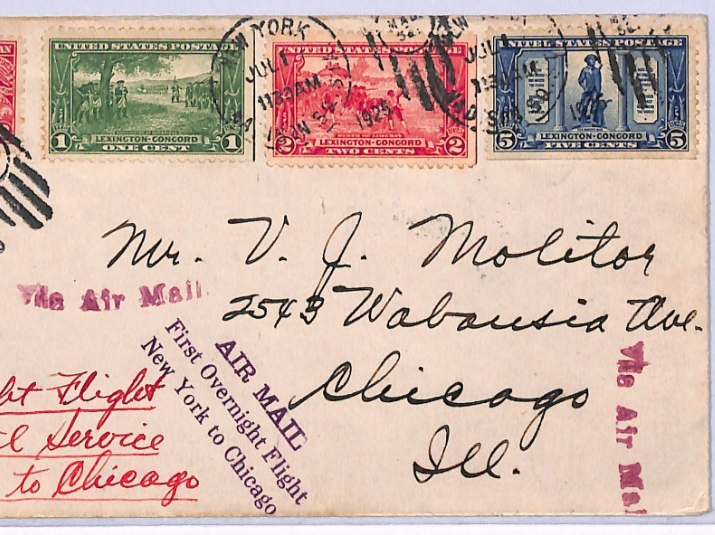 UNITED STATES POSTAGE
LEXINGTON-CONCORD
1 ONE CENT 1
UNITED STATES POSTAGE
BIRTH OF LIBERTY
LEXINGTON-CONCORD
2 TWO CENTS 2
UNITED STATES POSTAGE
LEXINGTON-CONCORD
5 FIVE CENTS 5
NEW YORK
JUL 1
1130AM
1925
JUL 1
Mr. V. J. Molitor
2543 Wabansia Ave.
Chicago
Ill.
Via Air Mail
AIR MAIL
First Overnight Flight
New York to Chicago
Via Air Mai
ht Flight
il Service
to Chicago